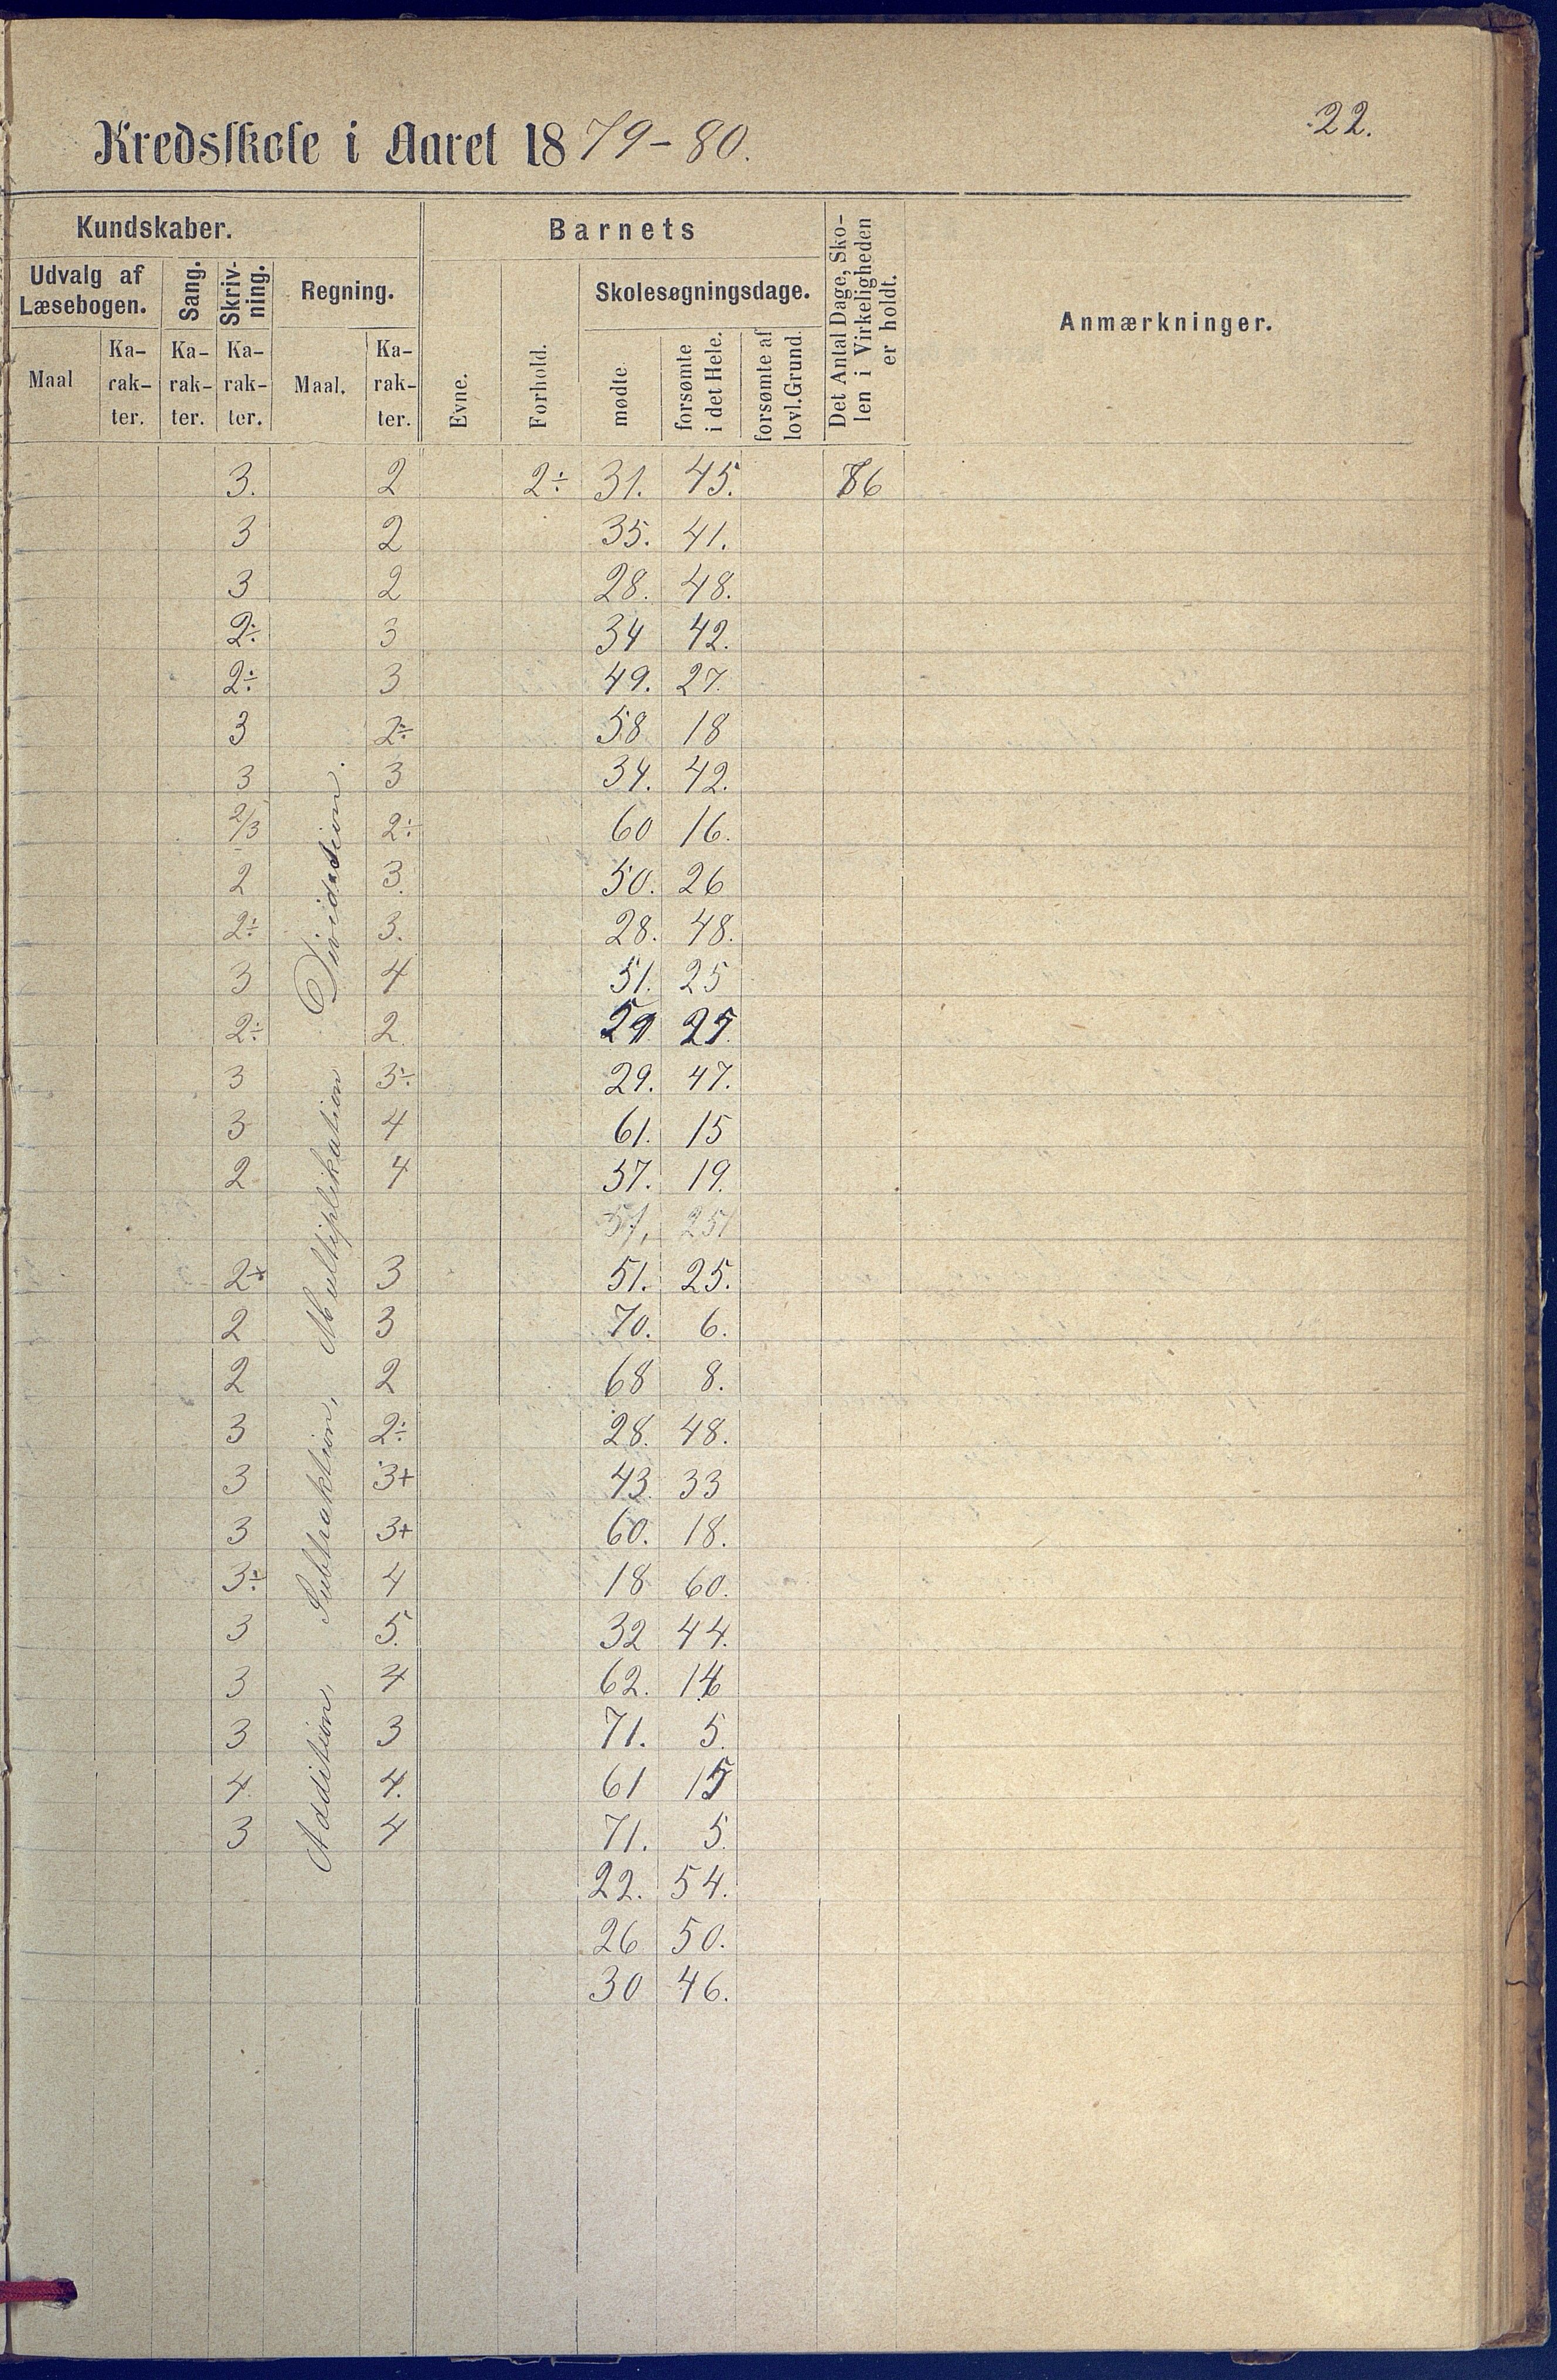 22.
Kredsskole i Aaret 1879-80.
Kundskaber. Barnets Det Antal Dage, Sko-len i Virkeligheden er holdt. Anmærkninger.
Udvalg af Læsebogen. Sang. Skriv-ning. Regning. Evne. Forhold. Skolesøgningsdage.
Maal Ka-rak-ter. Ka-rak-ter. Ka-rak-ter. Maal. Ka-rak-ter. mødte forsømte i det Hele. forsømte af lovl. Grund.
Addition, Subtraktion, Multiplikation Division.
3. 2 2÷ 31. 45. 76
3 2 35. 41.
3 2 28. 48.
2÷ 3 34 42.
2÷ 3 49. 27.
3 2÷ 58 18
3 3 34. 42.
2/3 2÷ 60 16.
2 3. 50. 26
2÷ 3. 28. 48.
3 4 51. 25
2÷ 2
3 3÷ 29. 47.
3 4 61. 15
2 4 57. 19.
2+ 3 51. 25.
2 3 70. 6.
2 2 68 8.
3 2÷ 28. 48.
3 3+ 43 33
3 3+ 60. 18.
3÷ 4 18 60.
3 5. 32 44.
3 4 62. 14
3 3 71. 5
4 4. 61 15
3 4 71. 5
22. 54.
26 50.
30 46.